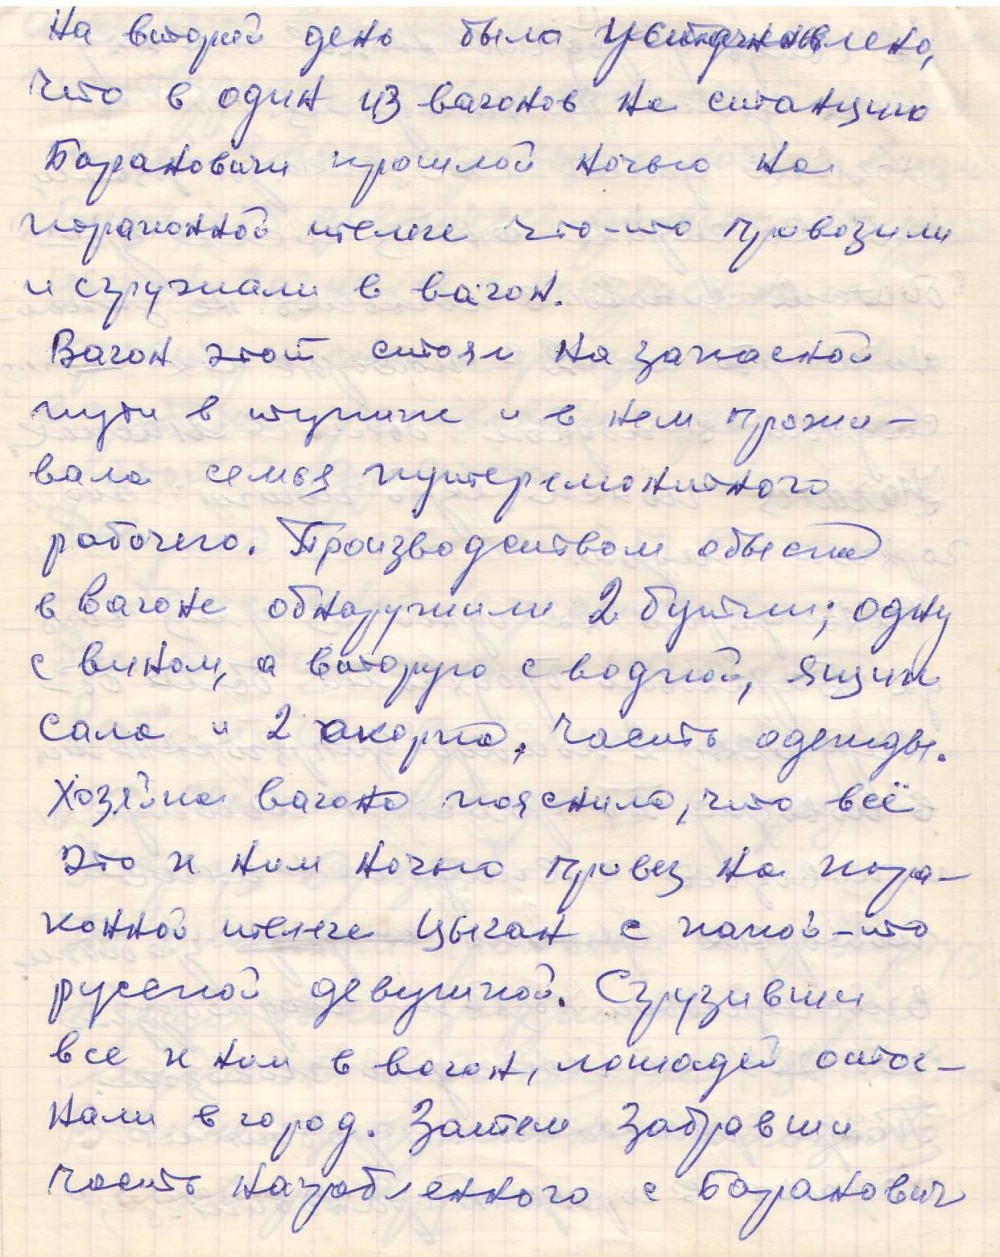 На второй день было установлено,
что в один из вагонов на станцию
Барановичи прошлой ночью на
пароконной телеге что-то привозили
и сгружали в вагон.
Вагон этот стоял на запасном
пути в тупике и в нем прожи-
вала семья путеремонтного
рабочего. Производством обыска
в вагоне обнаружили 2 бутли; одну
с вином, а вторую с водкой, ящик
сала и 2 окорка, часть одежды.
Хозяйка вагона пояснила, что всё
это к ним ночью привез на паро-
конной телеге цыган с какой-то
русской девушкой. Сгрузивши
все к ним в вагон, лошадей отог-
нали в город. Затем забравши
часть награбленного с Баранович